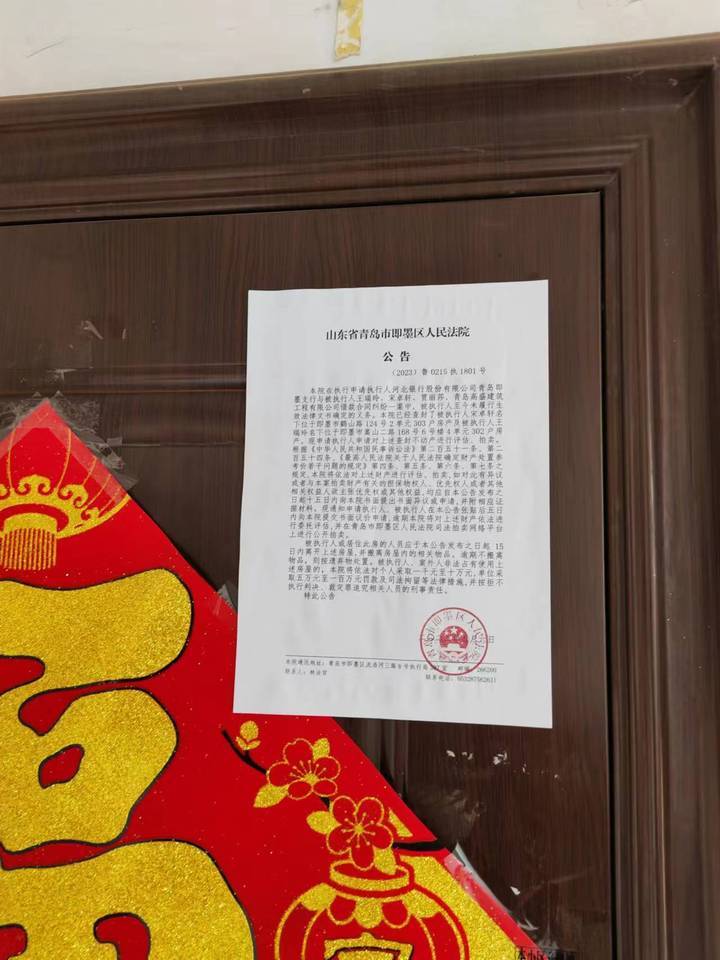 山东省青岛市即墨区人民法院
公告
（2023）鲁0215执1801号
本院在执行申请执行人河北银行股份有限公司青岛即
墨支行与被执行人王瑞玲、宋卓轩、贾丽莎、青岛高盛建筑
工程有限公司借款合同纠纷一案中，被执行人至今未履行生
效法律文书确定的义务。本院已经查封了被执行人宋卓轩名
下位于即墨市鹤山路124号2单元303户房产及被执行人王
瑞玲名下位于即墨市嵩山二路168号6号楼4单元302户房
产。现申请执行人申请对上述查封不动产进行评估、拍卖。
根据《中华人民共和国民事诉讼法》第二百五十一条、第二
百五十四条、《最高人民法院关于人民法院确定财产处置参
考价若干问题的规定》第四条、第五条、第六条、第七条之
规定，本院将依法对上述财产进行评估、拍卖。如对此有异议
或者与本案拍卖财产有关的担保物权人、优先权人或者其他
相关权益人欲主张优先权或其他权益，均应自本公告发布之
日起十五日内向本院书面提出书面异议或申请，并附相应证
据材料。现通知申请执行人、被执行人在本公告张贴后五日
内向本院提交书面议价申请，逾期本院将对上述财产依法进
行委托评估，并在青岛市即墨区人民法院司法拍卖网络平台
上进行公开拍卖。
被执行人或居住此房的人员应于本公告发布之日起15
日内离开上述房屋，并搬离房屋内的相关物品。逾期不搬离
物品，则按遗弃物处置。被执行人、案外人非法占有使用上
述房屋的，本院将依法对个人采取一千元至十万元，单位采
取五万元至一百万元罚款及司法拘留等法律措施，并按拒不
执行判决、裁定罪追究相关人员的刑事责任。
特此公告
日
本院通讯地址：青岛市即墨区流浩河三路 号执行局 室 邮编：266200
联系人：林法官 联系电话：053287562611
福